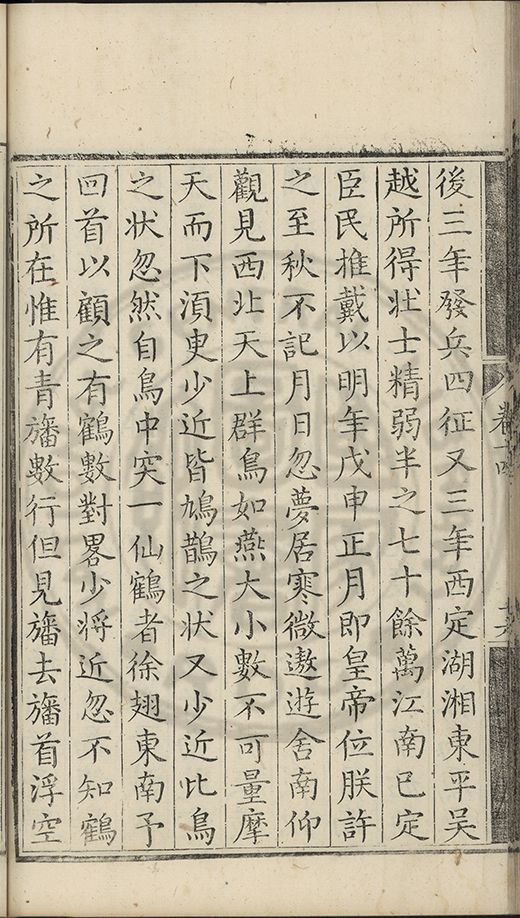 後三年發兵四征又三年西定湖湘東平吳
越所得壯士精弱半之七十餘萬江南已定
臣民推戴以明年戊申正月即皇帝位朕許
之至秋不記月日忽夢居寒微遨遊舍南仰
觀見西北天上群鳥如燕大小數不可量摩
天而下湏臾少近皆鳩鵲之状又少近比鳥
之状忽然自鳥中突一仙鶴者徐翅東南予
回首以顧之有鶴數對畧少將近忽不知鶴
之所在惟有青旛數行但見旛去旛首浮空